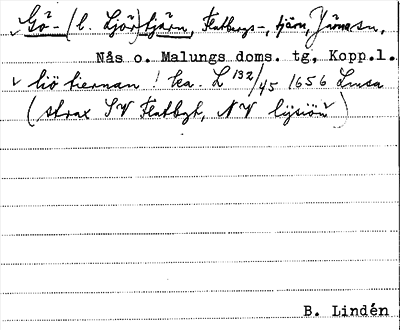 Gö- (l. Ljör)tjärn, Flatbergs-, tjärn, Järnasn,
Nås o. Malungs doms. tg, Kopp.l.
liö tiernan ! ka. L 132/45 1656 Lmsa
(strax SV Flatbgt, NV lysiön)
B. Lindén